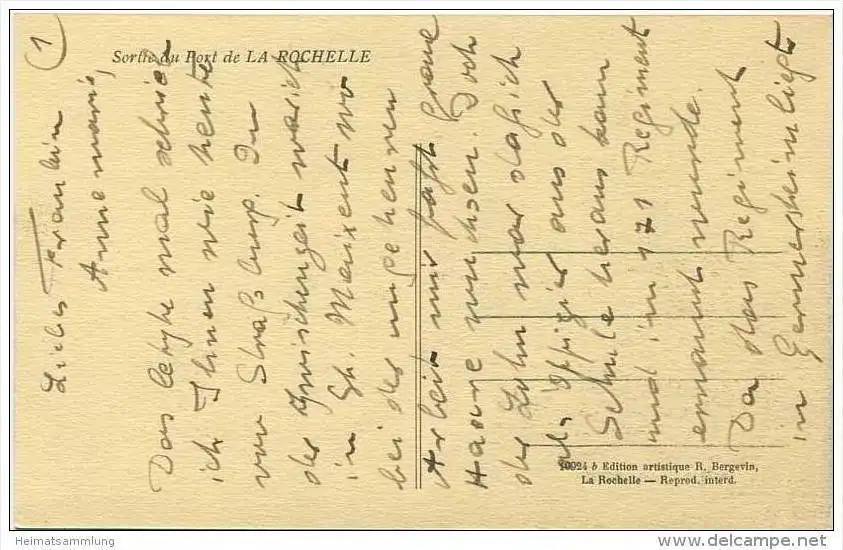 1)
Sortie du Port de LA ROCHELLE
Liebes Fräulein
Annemarie,
Das letzte mal schrieb
ich Ihnen wie heute
von Straßburg. In
der Zwischenzeit war ich
in St. Maixent wo
bei der ungeheuren
Arbeit mir fast graue
Haare wuchsen. Doch
der Lohn war daß ich
als Offizier aus der
Schule heraus kam
und im 171 Regiment
ernannt wurde.
Da das Regiment
in Germersheim liegt
10924 b Edition artistique R. Bergevin,
La Rochelle — Reprod. interd.
Heimatsammlung
www.delcampe.net